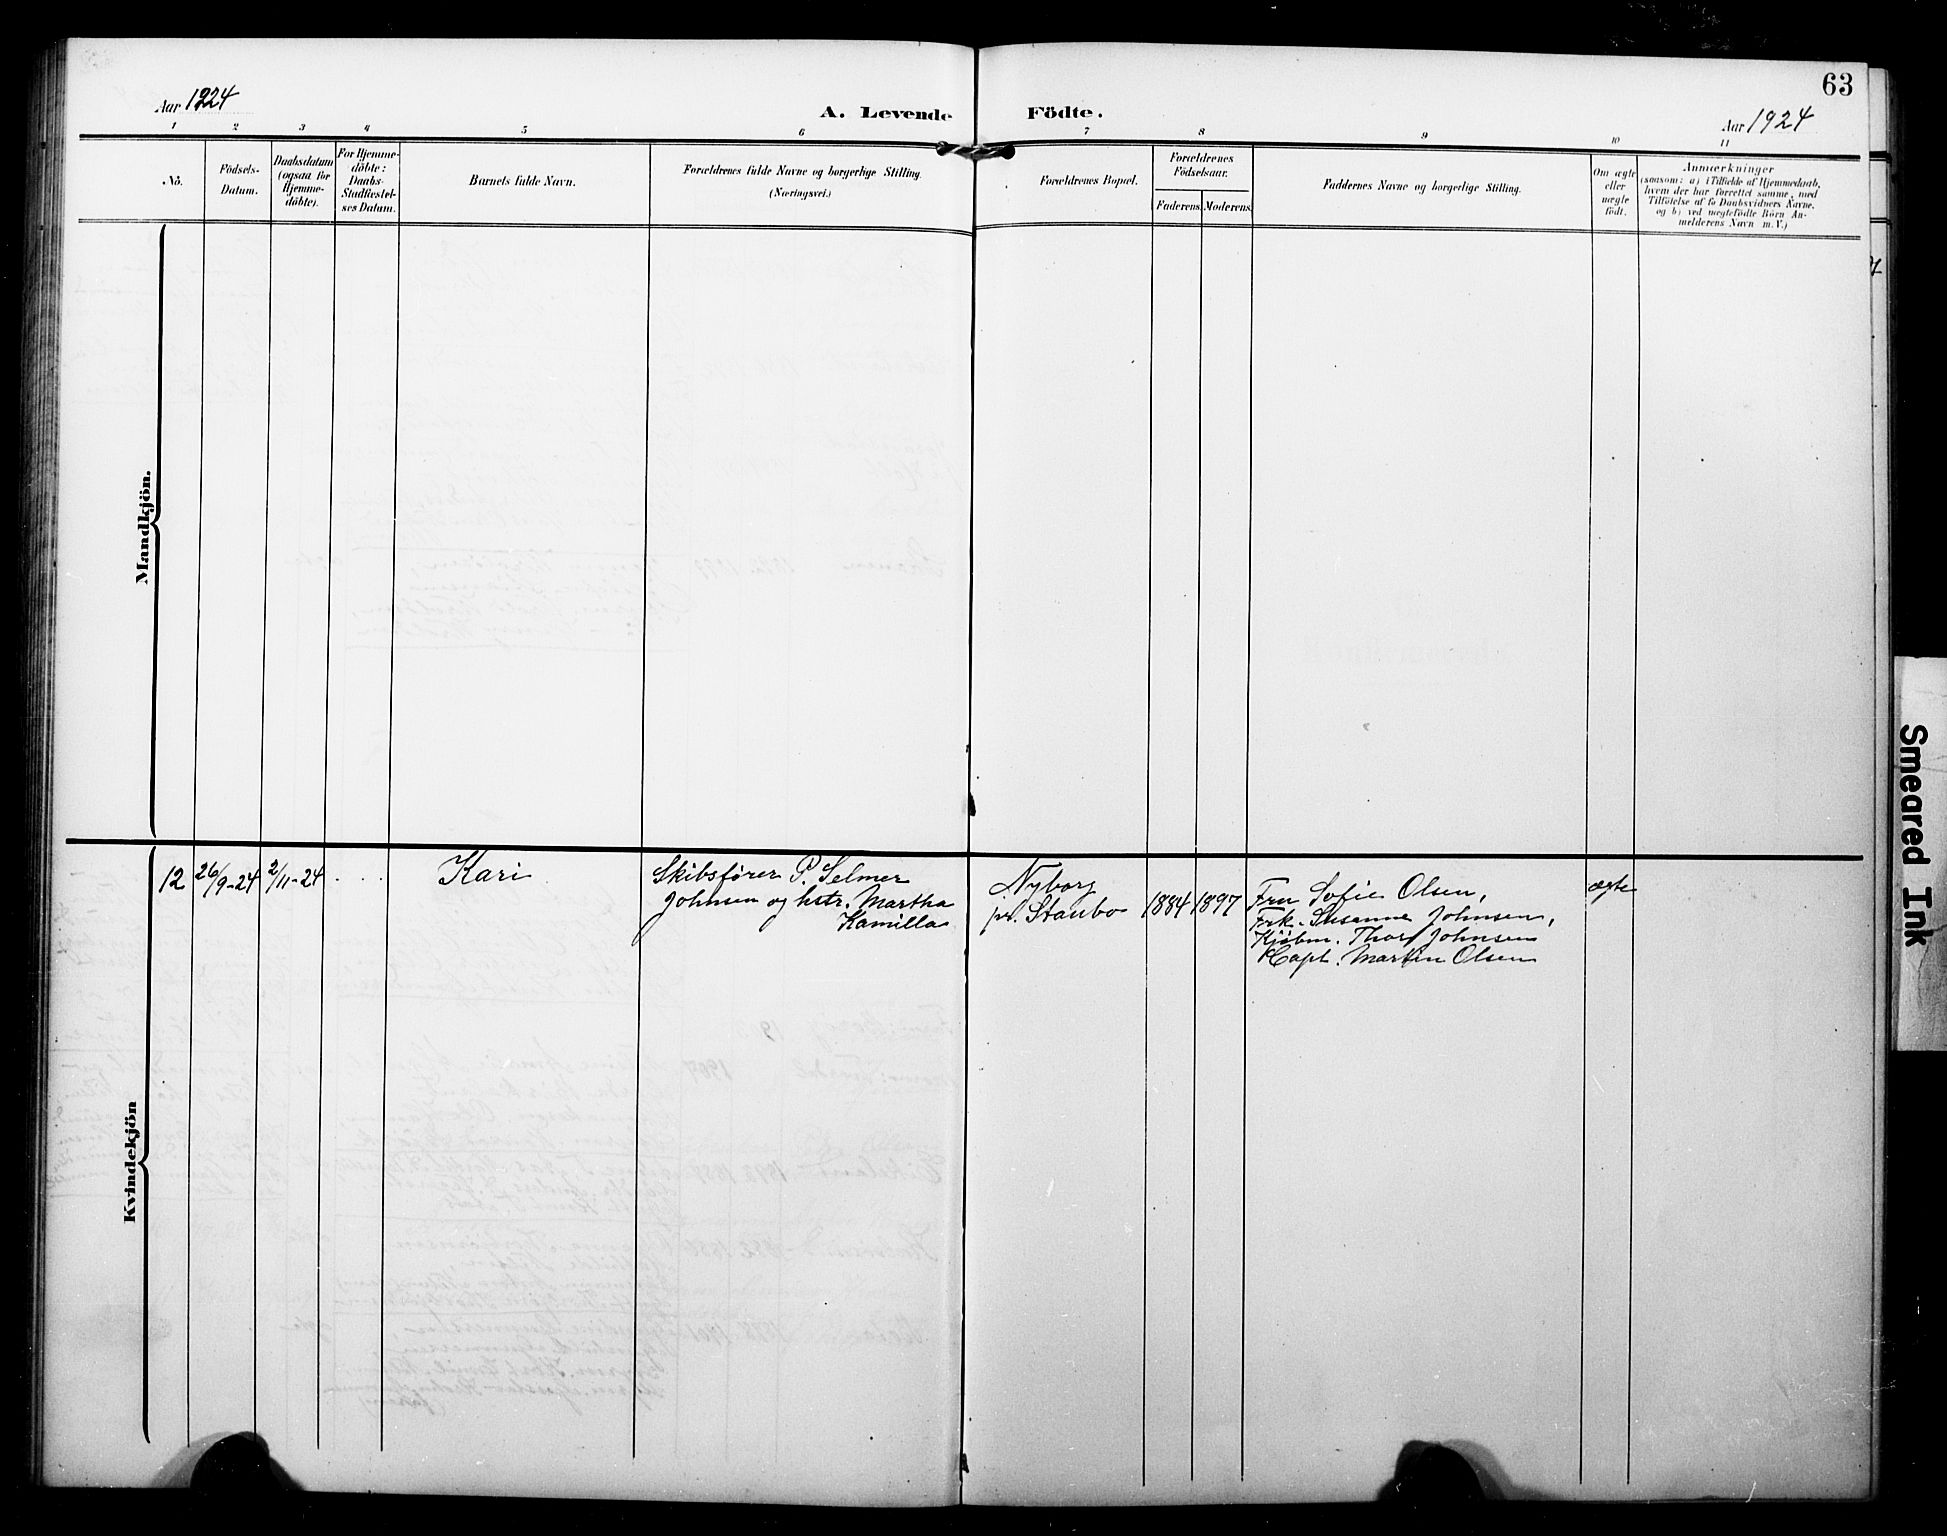 63
Aar 1924
A. Levende Födte.
Aar 1924
1 2 3 4 5 6 7 8 9 10 11
Nö.
Födsels-
Datum.
Daabsdatum
(ogsaa for
Hjemme-
döbte).
For Hjemme-
döbte:
Daabs-
Stadfæstel-
ses Datum.
Barnets fulde Navn.
Forældrenes fulde Navne og borgerlige Stilling.
(Næringsvei.)
Forældrenes Bopæl.
Forældrenes
Födselsaar.
Faderens Moderens
Faddernes Navne og borgerlige Stilling.
Om ægte
eller
uægte
födt.
Anmærkninger
(saasom: a) i Tilfælde af Hjemmedaab,
hvem der har forrettet samme, med
Tilföielse af to Daabsvidners Navne,
og b) ved uægtefödte Börn An-
melderens Navn m. V.)
Mandkjön.
Kvindekjön
12
26/9-24
2/11-24
Kari
Skibsfører P. Selmer
Johnsen og hstr. Martha
Kamilla
Nyborg
pr. Staubo
1884
1897
Fru Sofie Olsen,
Frk. Susanne Johnsen,
Kjøbm. Thorf Johnsen
Kapt. Martin Olsen
ægte
Smeared Ink